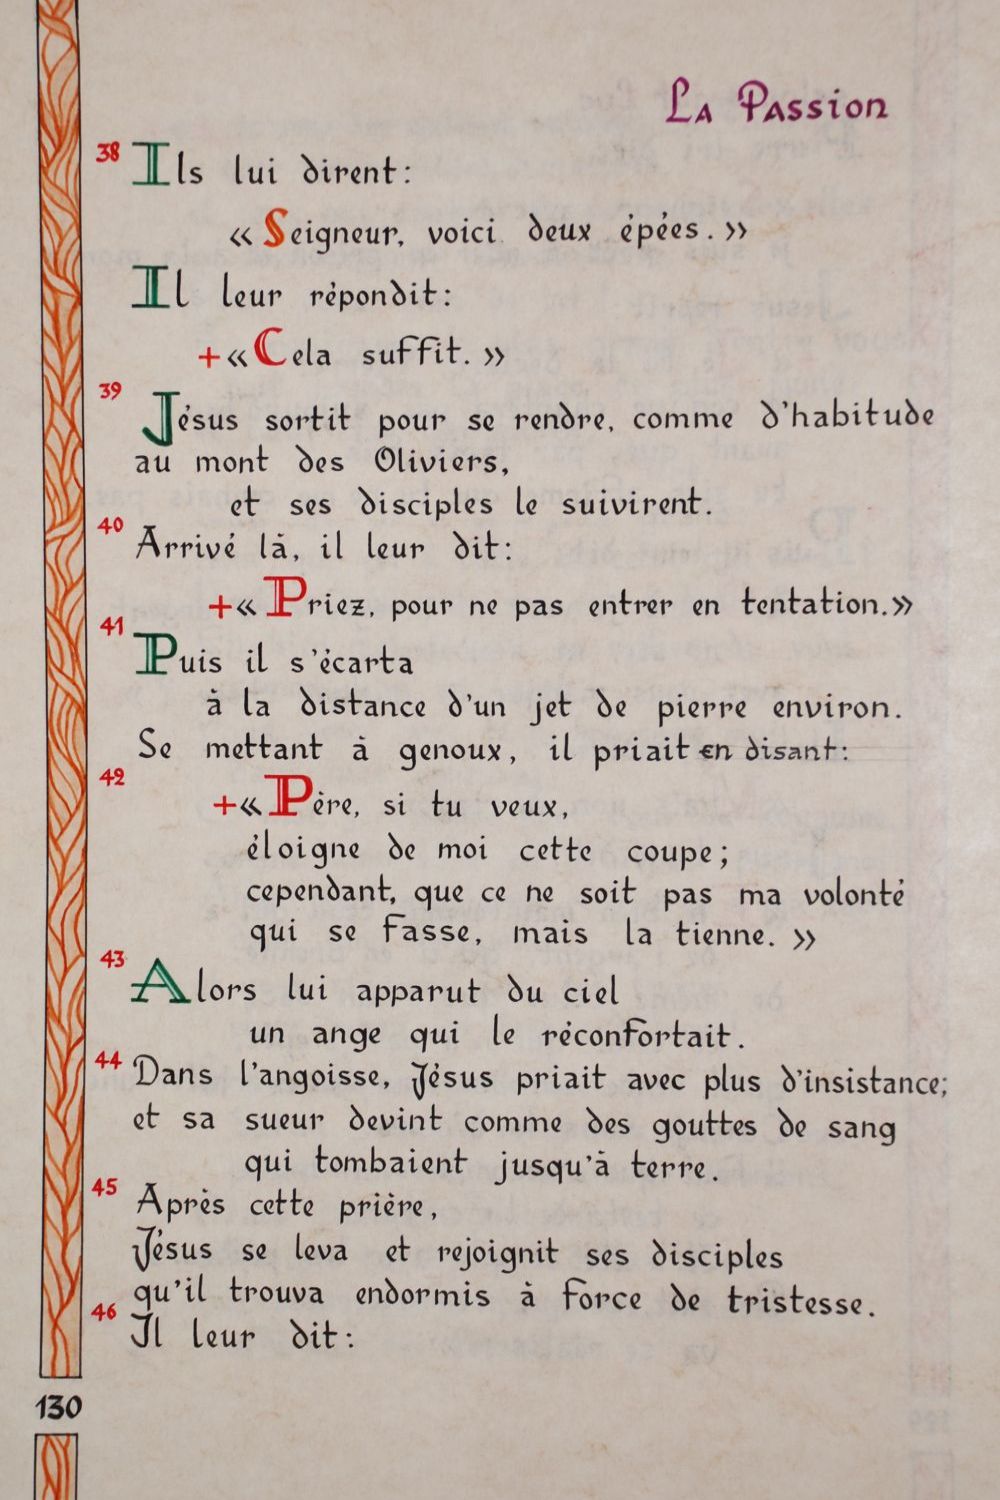 La Passion
38 Ils lui dirent:
« Seigneur, voici deux épées. »
Il leur répondit:
+« Cela suffit. »
39 Jésus sortit pour se rendre, comme d'habitude
au mont des Oliviers,
et ses disciples le suivirent.
40 Arrivé là, il leur dit:
+« Priez, pour ne pas entrer en tentation.»
41 Puis il s'écarta
à la distance d'un jet de pierre environ.
Se mettant à genoux, il priait en disant:
42 +« Père, si tu veux,
éloigne de moi cette coupe;
cependant, que ce ne soit pas ma volonté
qui se fasse, mais la tienne. »
43 Alors lui apparut du ciel
un ange qui le réconfortait.
44 Dans l'angoisse, Jésus priait avec plus d'insistance;
et sa sueur devint comme des gouttes de sang
qui tombaient jusqu'à terre.
45 Après cette prière,
Jésus se leva et rejoignit ses disciples
qu'il trouva endormis à force de tristesse.
46 Il leur dit:
130